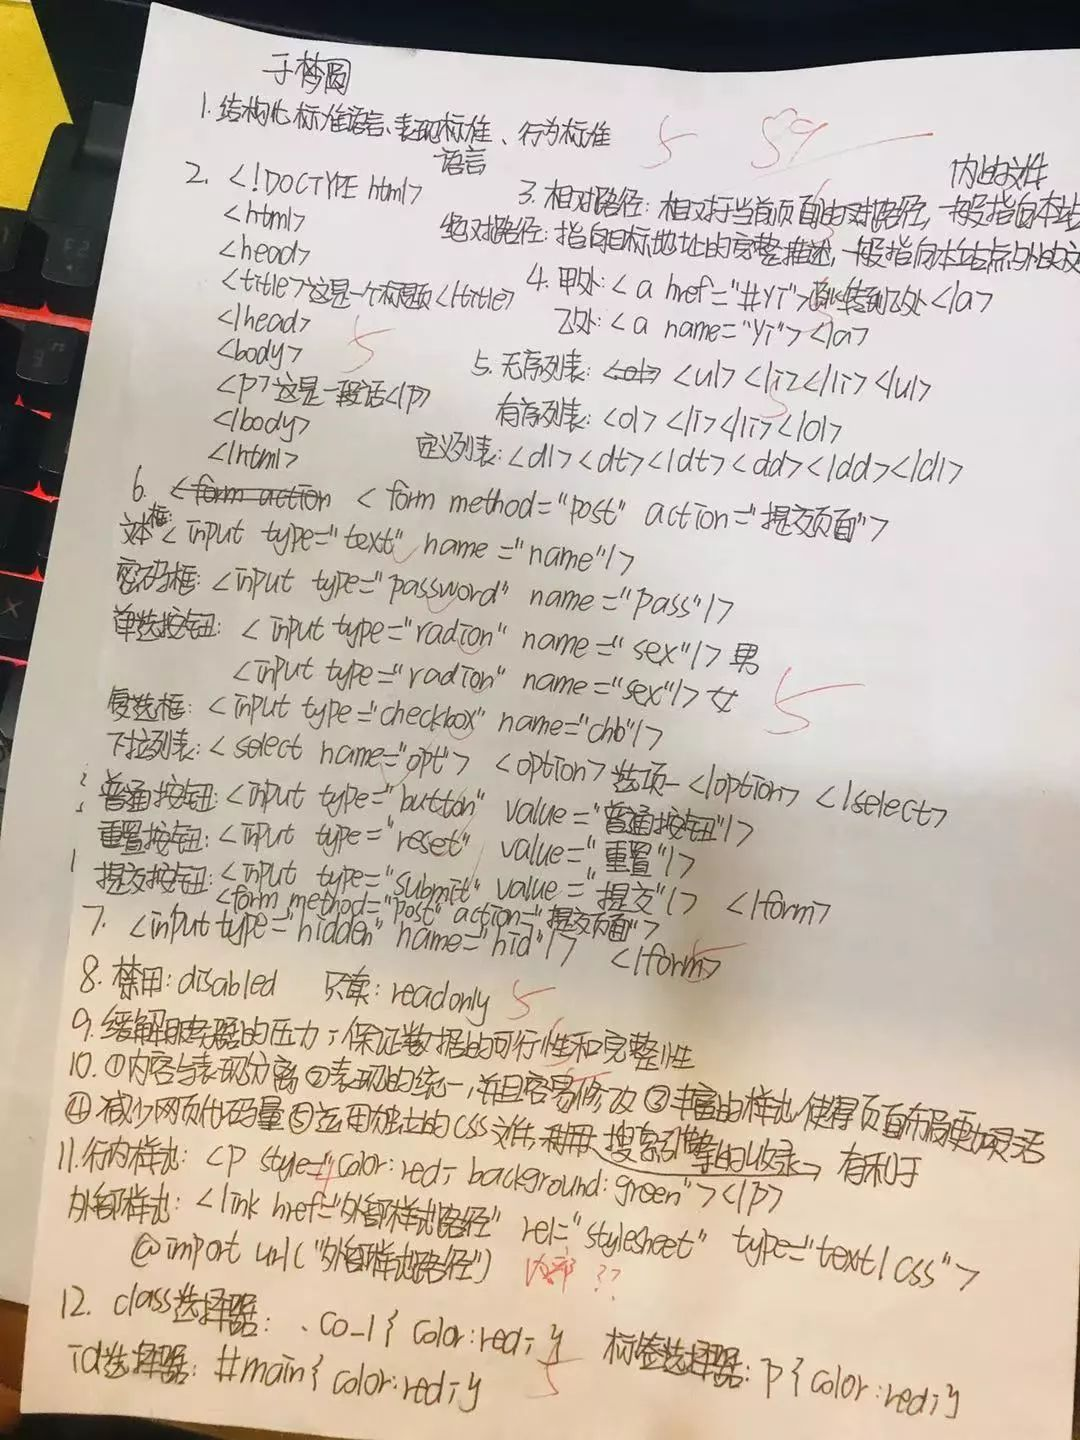 于梦圆
1. 结构化标准语言、表现标准语言、行为标准
5
59
2. <!DOCTYPE html>
<html>
<head>
<title>这是一个标题</title>
</head>
<body>
<p>这是一段话</p>
</body>
</html>
5
3. 相对路径：相对于当前页面的对路径，一般指向本站内的文件
绝对路径：指向目标地址的完整描述，一般指向本站点外的文
4. 甲处：<a href="#yi">跳转到乙处</a>
乙处：<a name="yi"></a>
5. 无序列表：<ul><li></li></ul>
有序列表：<ol><li></li></ol>
定义列表：<dl><dt></dt><dd></dd></dl>
6. <form action <form method="post" action="提交页面">
文本框：<input type="text" name="name"/>
密码框：<input type="password" name="pass"/>
单选按钮：<input type="radion" name="sex"/>男
<input type="radion" name="sex"/>女
5
复选框：<input type="checkbox" name="chb"/>
下拉列表：<select name="opt"> <option>选项一</option> </select>
普通按钮：<input type="button" value="普通按钮"/>
重置按钮：<input type="reset" value="重置"/>
提交按钮：<input type="submit" value="提交"/> </form>
<form method="post" action="提交页面">
7. <input type="hidden" name="hid"/> </form>
8. 禁用：disabled 只读：readonly
5
9. 缓解服务器的压力；保证数据的可行性和完整性
10. ①内容与表现分离 ②表现的统一，并且容易修改 ③丰富的样式，使得页面布局更加灵活
④减少网页代码量 ⑤运用独立的CSS文件，利用搜索引擎的收录 有利于
11. 行内样式：<p style="color:red; background:green"></p>
4
外部样式：<link href="外部样式路径" rel="stylesheet" type="text/css">
@import url("外部样式路径")
内部??
12. class选择器：.co_1{color:red;} 标签选择器：p{color:red;}
id选择器：#main{color:red;}
5